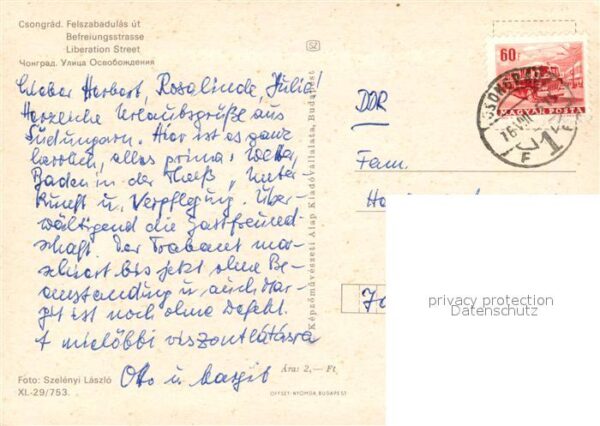 Csongrád. Felszabadulás út
Befreiungsstrasse
Liberation Street
Чонград. Улица Освобождения
Lieber Herbert, Rosalinde, Julia!
Herzliche Urlaubsgrüße aus
Südungarn. Hier ist es ganz
alles prima: Wetter,
Baden in der Theiß, Unter-
kunft u. Verpflegung. Über-
wältigend die Gastfreund-
schaft. Der Trabant mar-
schiert bis jetzt ohne Be-
anstandung u. auch Mar-
git ist noch ohne Defekt.
A mielőbbi viszontlátásra
Otto u. Margit
Foto: Szelényi László
XI.-29/753.
Képzőművészeti Alap Kiadóvállalata, Budapest
Ára: 2,— Ft.
OFFSET-NYOMDA, BUDAPEST
60f
MAGYAR POSTA
CSONGRÁD
1
F
DDR
Fam.
privacy protection
Datenschutz